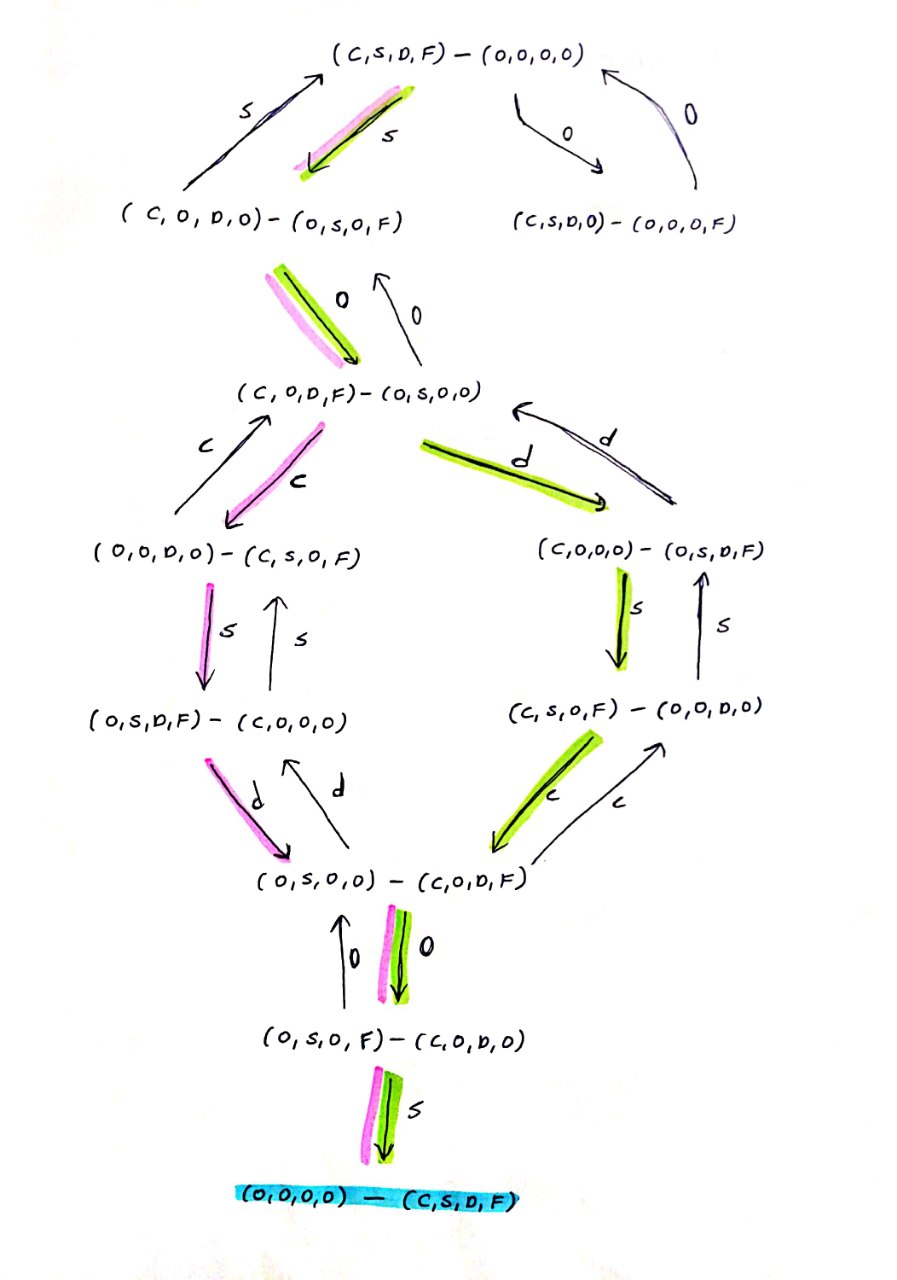 (C,S,D,F) - (0,0,0,0)
S S 0 0
(C,0,D,0) - (0,S,0,F) (C,S,D,0) - (0,0,0,F)
0 0
(C,0,D,F) - (0,S,0,0)
c c d d
(0,0,D,0) - (C,S,0,F) (C,0,0,0) - (0,S,D,F)
S S S S
(0,S,D,F) - (C,0,0,0) (C,S,0,F) - (0,0,D,0)
d d c c
(0,S,0,0) - (C,0,D,F)
0 0
(0,S,0,F) - (C,0,D,0)
S
(0,0,0,0) - (C,S,D,F)